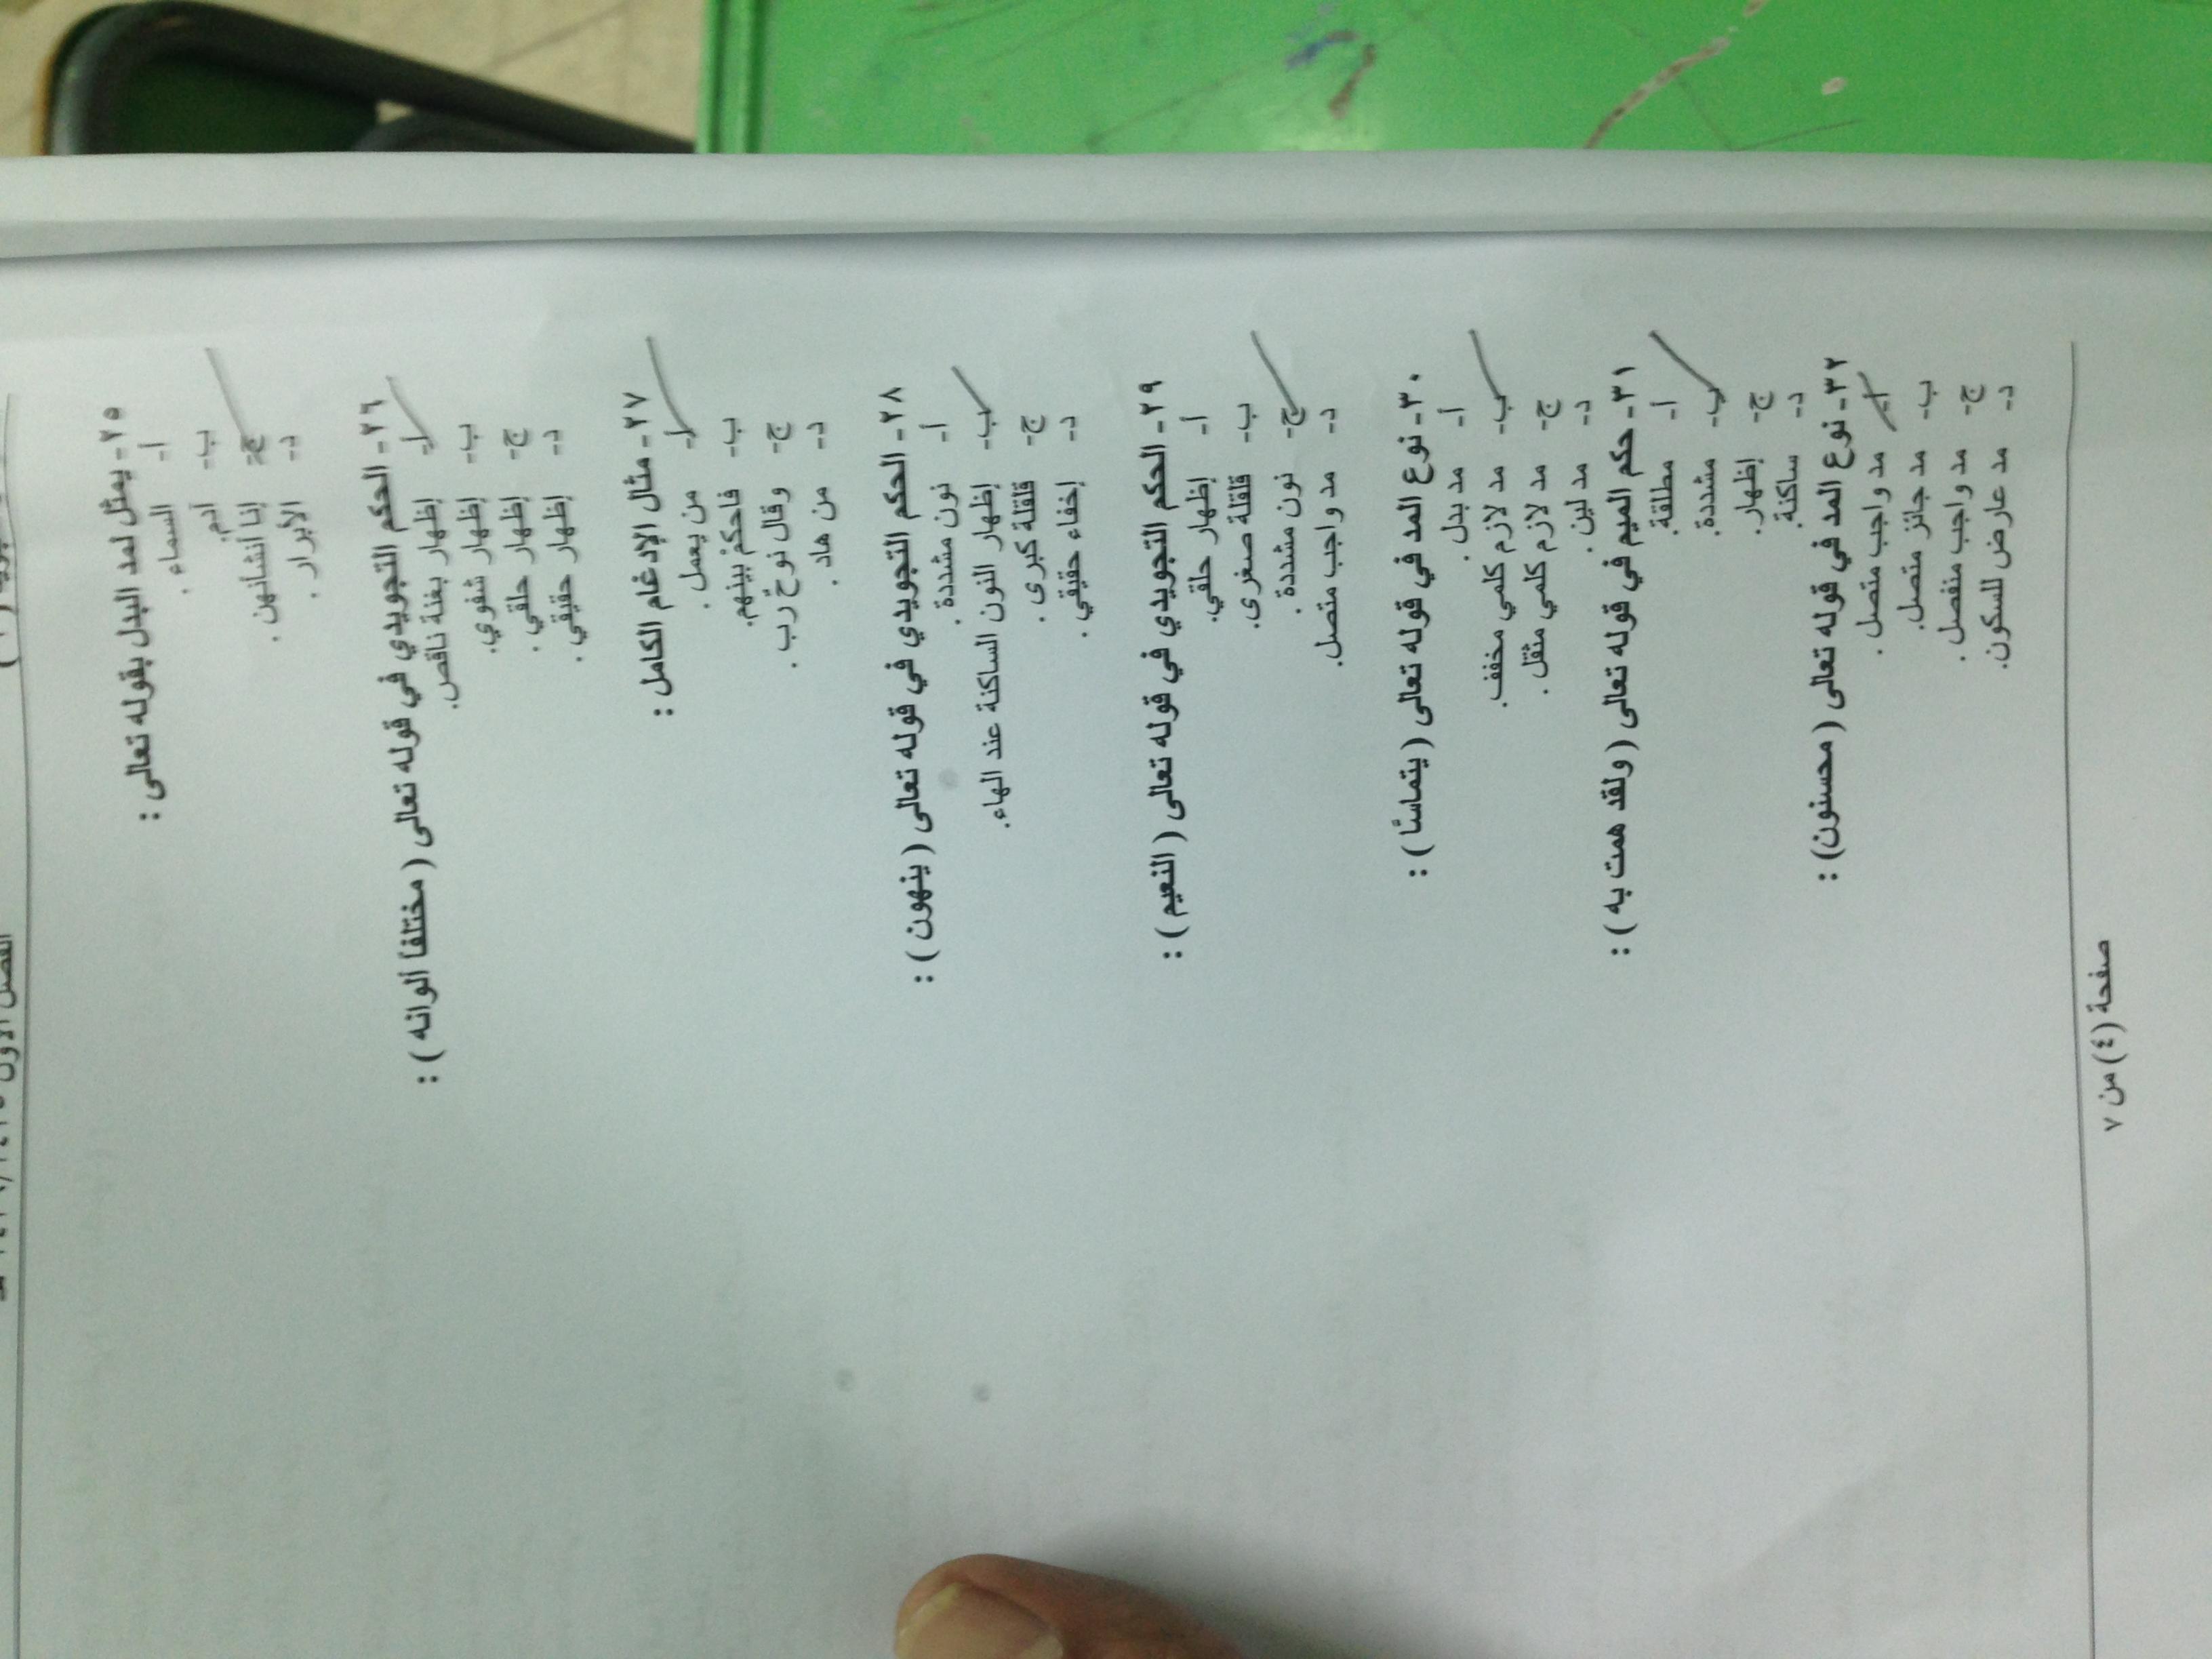 ٢٥- يمثل لمد البدل بقوله تعالى :
أ- السماء .
ب- آدم.
ج- إنا أنشأنهن .
د- الأبرار .
٢٦- الحكم التجويدي في قوله تعالى ( مختلفاً ألوانه ) :
أ- إظهار بغنة ناقص.
ب- إظهار شفوي.
ج- إظهار حلقي .
د- إظهار حقيقي .
٢٧- مثال الإدغام الكامل :
أ- من يعمل .
ب- فاحكم بينهم.
ج- وقال نوح رّب .
د- من هاد .
٢٨- الحكم التجويدي في قوله تعالى ( ينهون ) :
أ- نون مشددة .
ب- إظهار النون الساكنة عند الهاء.
ج- قلقلة كبرى .
د- إخفاء حقيقي .
٢٩- الحكم التجويدي في قوله تعالى ( النعيم ) :
أ- إظهار حلقي.
ب- قلقلة صغرى.
ج- نون مشددة .
د- مد واجب متصل.
٣٠- نوع المد في قوله تعالى ( يتماسّا ) :
أ- مد بدل .
ب- مد لازم كلمي مخفف.
ج- مد لازم كلمي مثقل .
د- مد لين .
٣١- حكم الميم في قوله تعالى ( ولقد همت به ) :
أ- مطلقة.
ب- مشددة.
ج- إظهار.
د- ساكنة.
٣٢- نوع المد في قوله تعالى ( محسنون) :
أ- مد واجب متصل .
ب- مد جائز متصل.
ج- مد واجب منفصل .
د- مد عارض للسكون.
صفحة (٤) من ٧